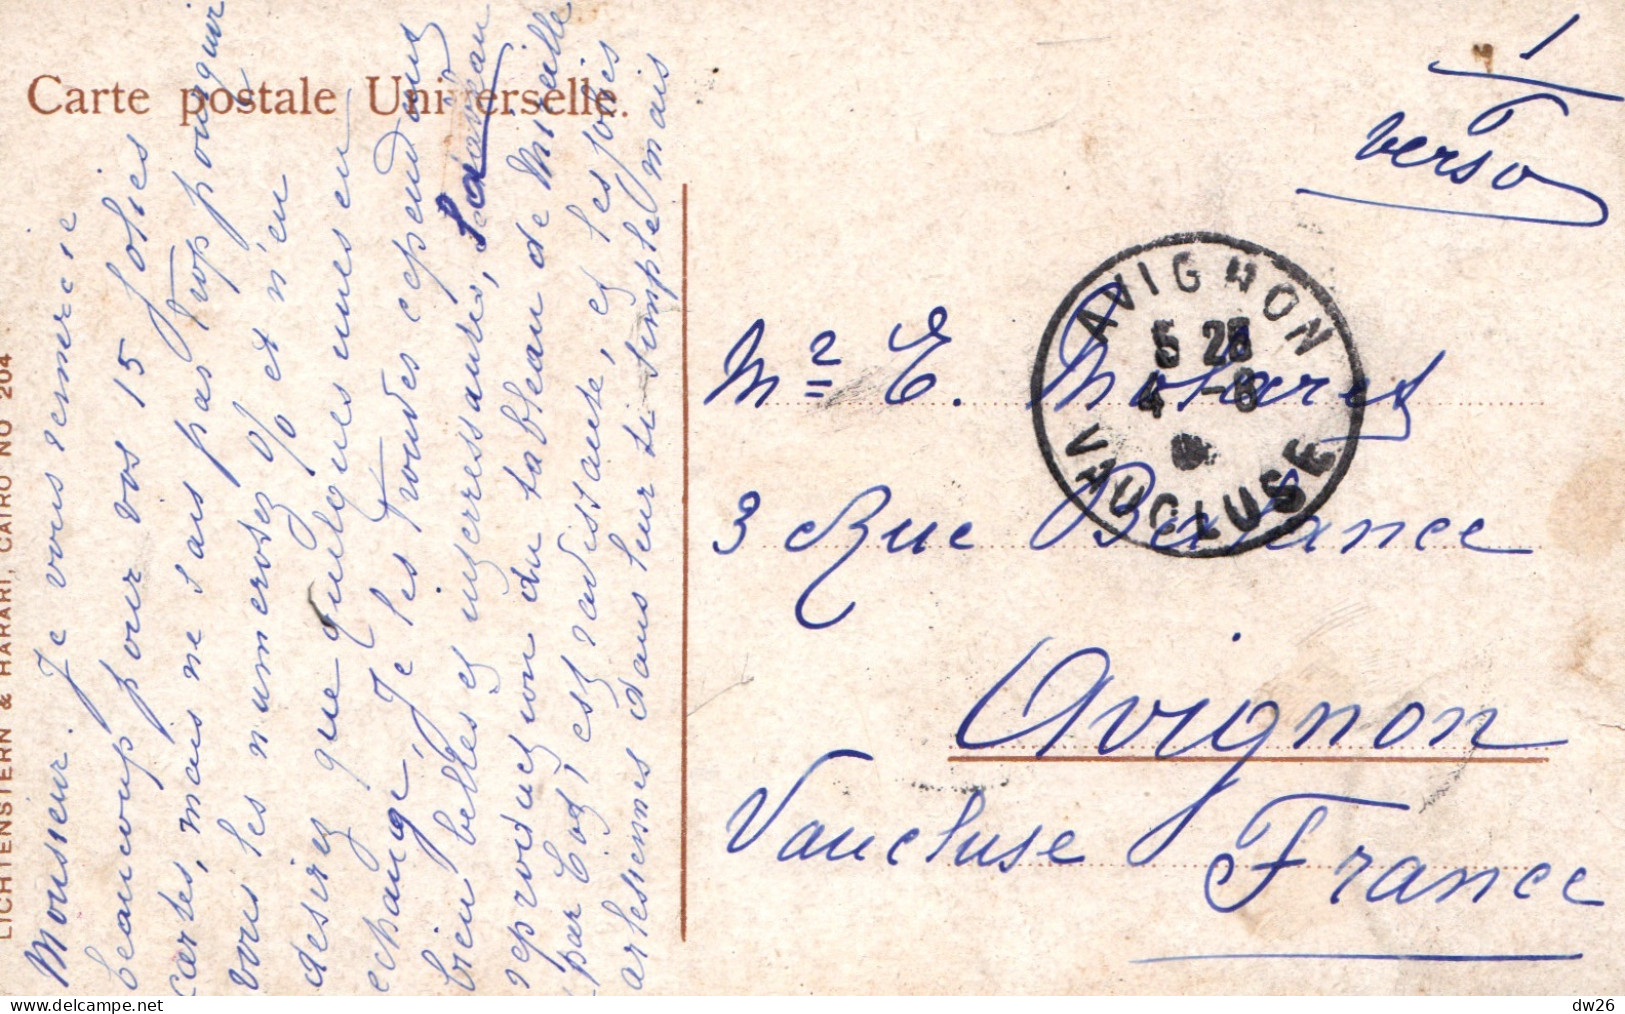 Carte postale Universelle.
LICHTENSTERN & HARARI, CAIRO NO 204
Monsieur. Je vous remercie
beaucoup pour vos 15 jolies
cartes, mais ne sais pas trop pourquoi
vous les numerosez % et n'en
desirez que quelques unes en
echange, Je les trouves ependant
bien belles et interressantes,
reproduction du tableau de Mireille
par Cot, est ravissante, et les jolies
arlesiennes dans leur si simple mais
1
verso
Mr E.
3 Rue Balance
Avignon
Vaucluse
France
AVIGNON
5 25
4 -8
VAUCLUSE
dw26